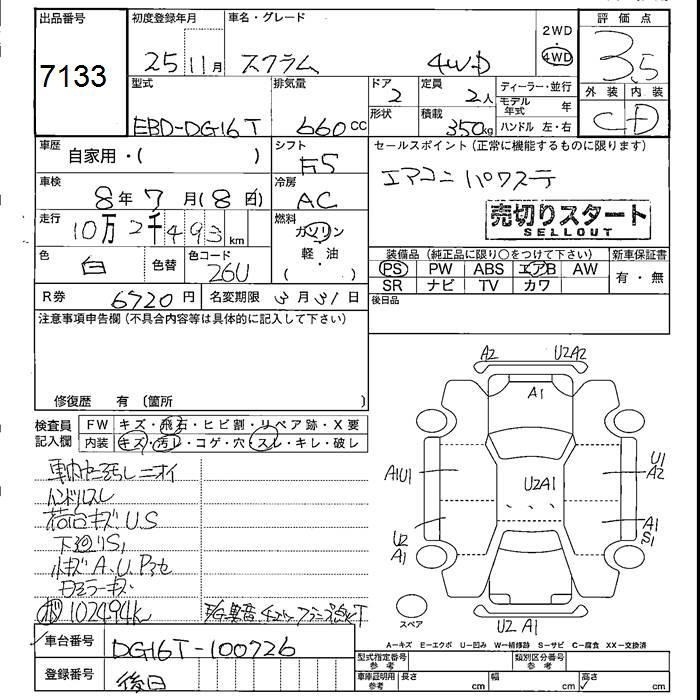 出品番号
7133
初度登録年月
25 11月
車名・グレード
スクラム 4WD
2WD
・
4WD
評価点
3.5
外装 内装
C D
型式
EBD-DG16T
排気量
660 CC
ドア
2
形状
定員
2人
積載
350kg
ディーラー・並行
モデル年式 年
ハンドル 左・右
車歴
自家用・( )
シフト
F5
車検
8年 7月 (8日)
冷房
AC
走行
10万 2千 493 km
燃料
ガソリン
軽・油
( )
色
白
色替
色コード
26U
R券
6720円
名変期限
3月31日
セールスポイント(正常に機能するものに限ります)
エアコン パワステ
売切りスタート
SELLOUT
装備品(純正品に限り○をつけて下さい)
新車保証書
PS PW ABS エアB AW
SR ナビ TV カワ
有・無
後日品
注意事項申告欄(不具合内容等は具体的に記入して下さい)
修復歴 有(箇所 )
検査員
記入欄
FW キズ・飛石・ヒビ割・リペア跡・X要
内装 キズ・汚レ・コゲ・穴・スレ・キレ・破レ
ハンドルスレ
荷台キズ、U.S
下廻りS1
102494K
車台番号
DG16T-100726
登録番号
後日
A2
U2A2
A1
A1U1
U2A1
U1
A2
U2
A1
A1
S1
スペア
U2 A1
A-キズ E-エクボ U-凹み W-補修跡 S-サビ C-腐食 XX-交換済
型式指定番号
参考
類別区分番号
参考
車庫証明用
参考
長さ cm
幅 cm
高さ cm